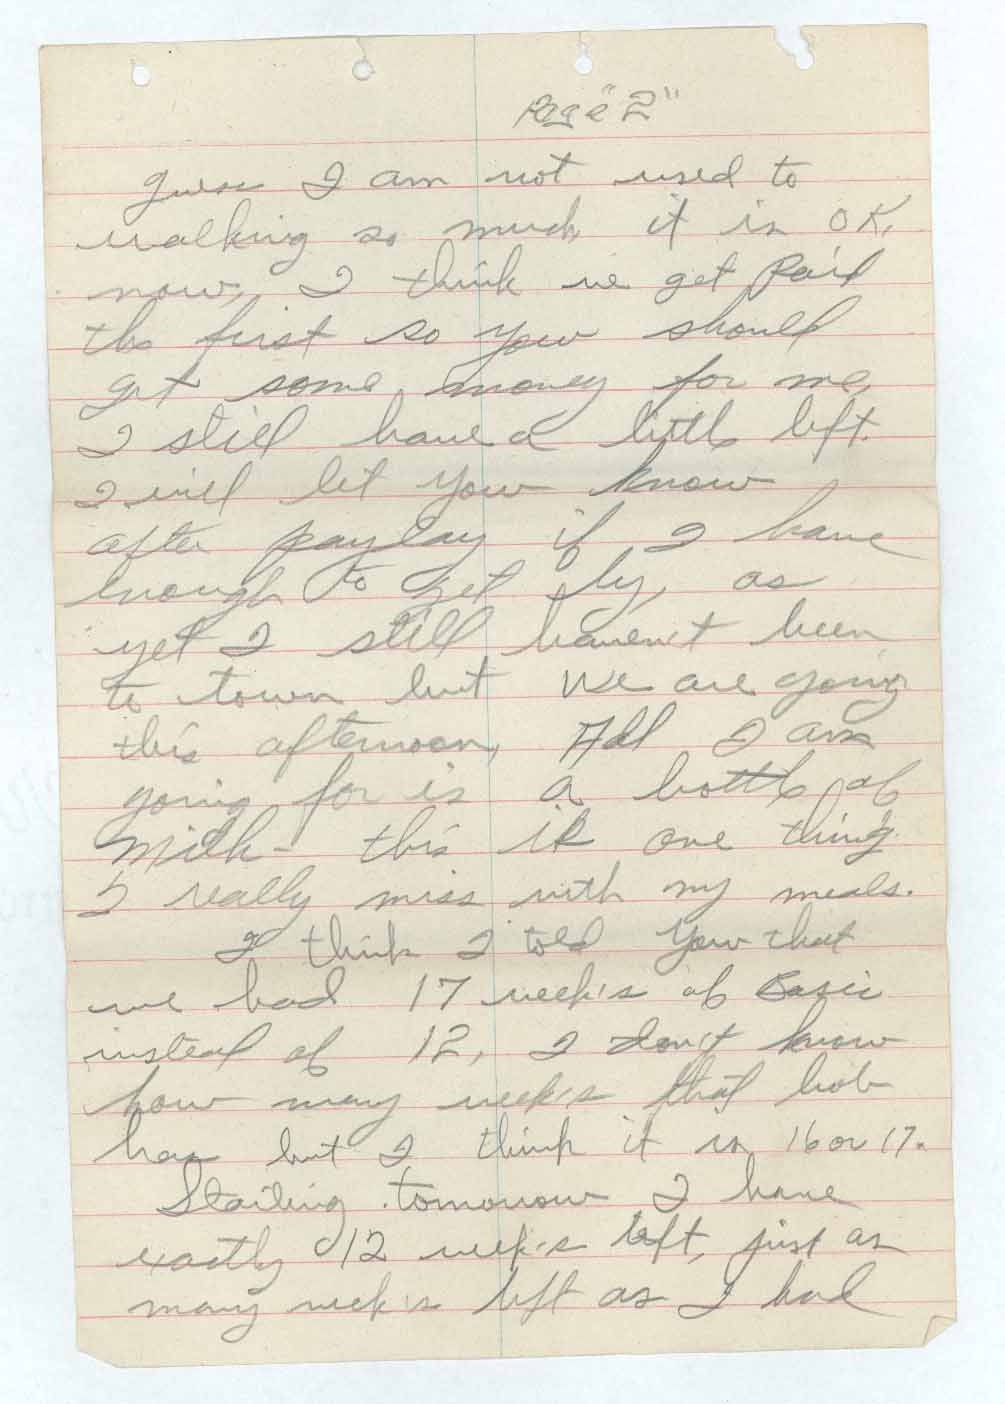 Page "2"
guess I am not used to
walking so much, it is OK,
now, I think we get Paid
the first so you should
get some money for me,
I still have a little left.
I will let you know
after payday if I have
enough to get by, as
yet I still haven't been
to town but we are going
this afternoon, All I am
going for is a bottle of
Milk - this is one thing
I really miss with my meals.
I think I told you that
we had 17 week's of Basic
instead of 12, I don't know
how many week's that bob
has but I think it is 16 or 17.
Starting tomorrow I have
exactly 12 week's left, just as
many week's left as I had